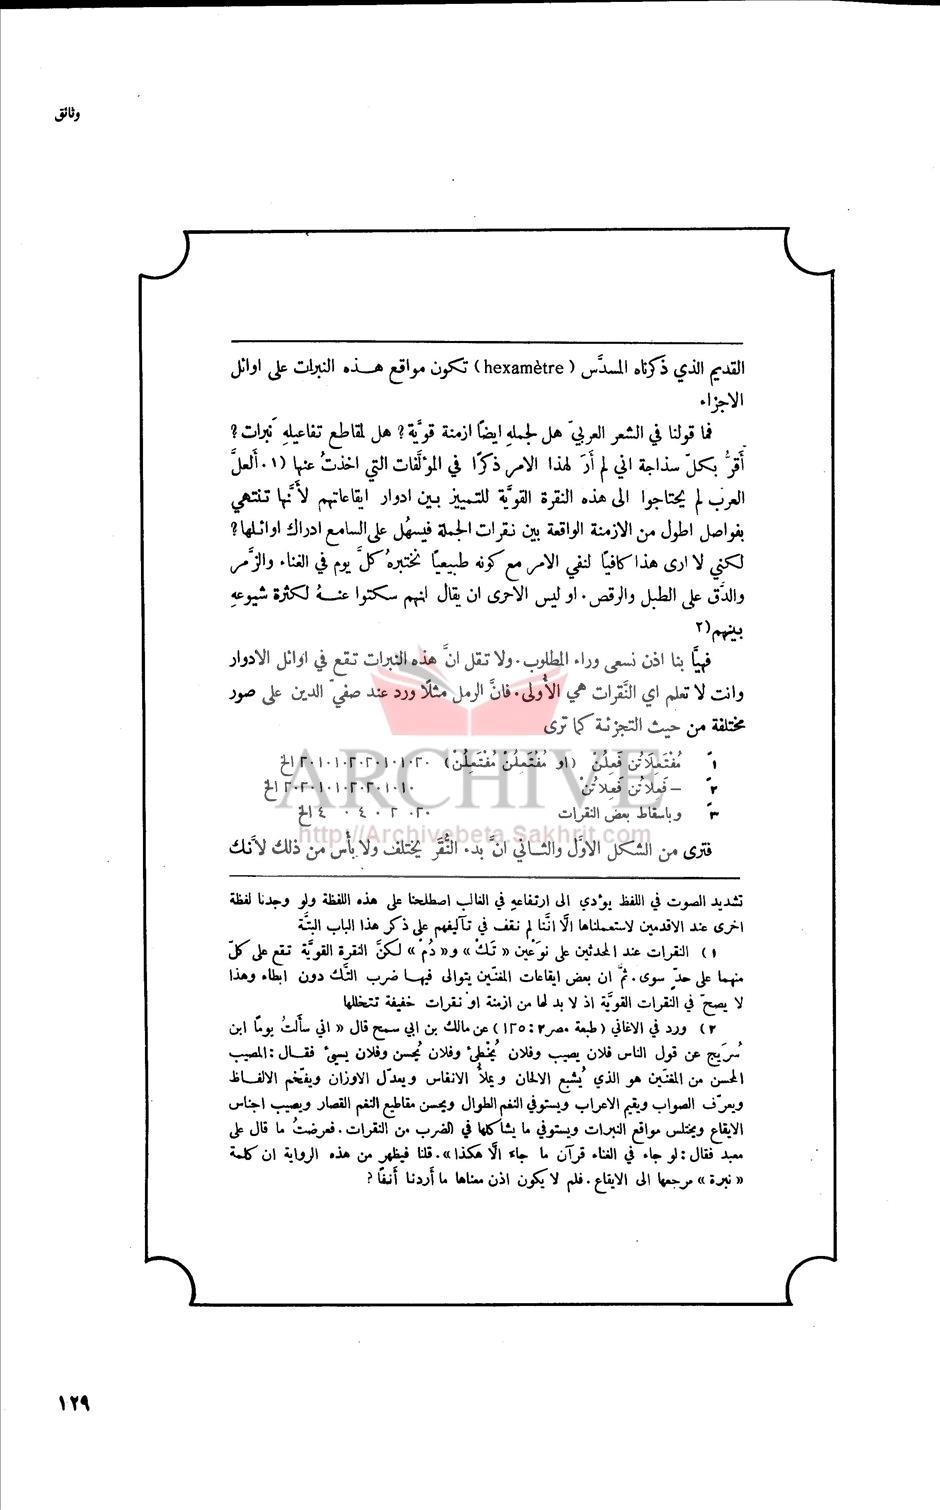 وثائق
القديم الذي ذكرناه المسدَّس (hexamètre) تكون مواقع هـذه النبرات على اوائل
الاجزاء
فما قولنا في الشعر العربيّ هل لجملهِ ايضًا ازمنة قويَّة؟ هل لمقاطع تفاعيلهِ نَبرات؟
أقرُّ بكلّ سذاجة اني لم أرَ لهذا الامر ذكرًا في المؤلَّفات التي اخذتُ عنها (١٠ ألعلَّ
العرب لم يحتاجوا الى هذه النقرة القويَّة للتمييز بـين ادوار ايقاعاتهم لأَنَّها تـنتهي
بفواصل اطول من الازمنة الواقعة بين نـقرات الجملة فيسهُل على السامع ادراك اوائـلها؟
لكنّي لا ارى هذا كافيًا لنفي الامر مع كونه طبيعيًا نختبرهُ كلَّ يوم في الغناء والزَّمر
والدَّق على الطبل والرقص. او ليس الاحرى ان يقال انهم سكتوا عنـهُ لكثرة شيوعهِ
بينهم (٢
فهيَّا بنا اذن نسعى وراء المطلوب. ولا تـقل انَّ هذه النبرات تـقع في اوائل الادوار
وانت لا تعلم اي النَّقرات هي الأُولى. فانَّ الرمل مثلًا ورد عند صفيّ الدين على صور
مختلفة من حيث التجزئـة كما ترى
١ً مُفْتَعِلَاتُن فَعِلُنْ (او مُفْتَعِلُنْ مُفْتَعِلُنْ) ٢٠١٠١٠٢٠٢٠١٠١٠٢٠ الخ
٢ً – فَعِلَاتُن فَعِلَاتُنْ ٢٠٢٠١٠١٠٢٠٢٠١٠١٠ الخ
٣ً وباسقاط بعض النقرات ٢٠ ٢٠ ٠ ٤ ٠ ٤ الخ
فترى من الشكل الاوَّل والثـاني انَّ بدء النُّقَر يختلف ولا بأس من ذلك لأنَّك
تشديد الصوت في اللفظ يؤدي الى ارتفاعهِ في الغالب اصطلحنا على هذه اللفظة ولو وجدنا لفظة
اخرى عند الاقدمين لاستعملناها الَّا انَّنا لم نـقف في تـآليفهم على ذكر هذا الباب البتَّة
١) النقرات عند المحدثين على نوعَين «تَكْ» و«دُمْ» لكنَّ النقرة القويَّة تـقع على كلّ
منهما على حدٍّ سوى. ثمَّ ان بعض ايقاعات المغنّين يتوالى فيهـا ضرب التَّك دون ابطاء وهذا
لا يصحّ في النقرات القويَّة اذ لا بد لها من ازمنة او نـقرات خفيفة تتخللها
٢) ورد في الاغاني (طبعة مصر ٢ : ١٢٥) عن مالك بن ابي سمح قال «اني سألتُ يومًا ابن
سُرَيج عن قول الناس فلان يصيب وفلان يُخطئ وفلان يُحسن وفلان يسيئ فقـال: المصيب
المحسن من المغنّين هو الذي يُشبع الالحان ويملأُ الانفاس ويعدّل الاوزان ويفخّم الالفـاظ
ويعرّف الصواب ويقيم الاعراب ويستوفي النغم الطوال ويحسن مقاطيع النغم القصار ويصيب اجناس
الايقاع ويختلس مواقع النبرات ويستوفي ما يشاكلها في الضرب من النقرات. فعرضتُ ما قال على
معبد فقال: لو جاء في الغناء قرآن ما جاءَ الَّا هكذا». قلنا فيظهر من هذه الرواية ان كلمة
«نبرة» مرجعها الى الايقاع. فلم لا يكون اذن معناها ما أردنا أنفًا؟
ARCHIVE
http://Archivebeta.Sakhrit.com
١٢٩